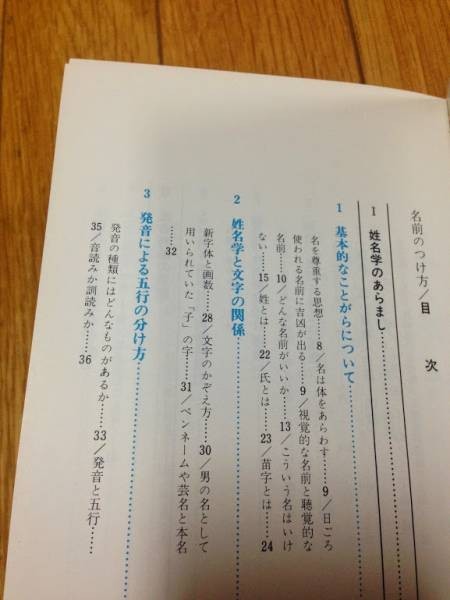 名前のつけ方/目次
1 姓名学のあらまし……
1 基本的なことがらについて……
名を尊重する思想……8/名は体をあらわす……9/日ごろ
使われる名前に吉凶が出る……9/視覚的な名前と聴覚的な
名前……10/どんな名前がいいか……13/こういう名はいけ
ない……15/姓とは……22/氏とは……23/苗字とは……24
2 姓名学と文字の関係……
新字体と画数……28/文字のかぞえ方……30/男の名として
用いられていた「子」の字……31/ペンネームや芸名と本名
……32
3 発音による五行の分け方……
発音の種類にはどんなものがあるか……33/発音と五行……
35/音読みか訓読みか……36